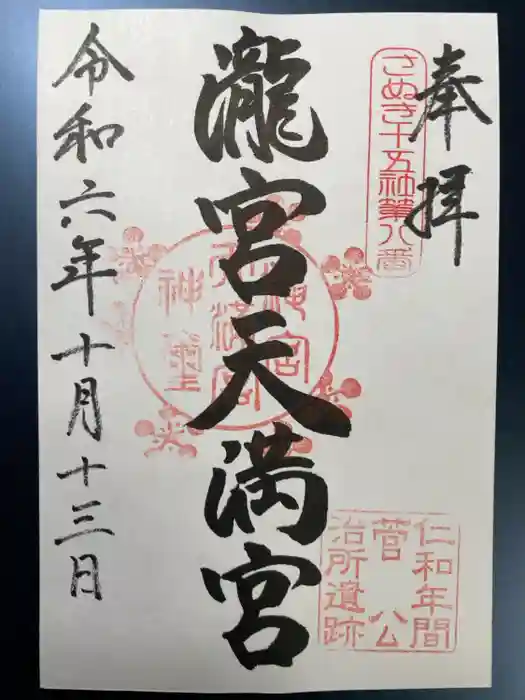 奉拝
さぬき十五社第八番
瀧宮天満宮
瀧宮
天満宮
神璽
仁和年間
菅公
治所遺跡
令和六年十月十三日